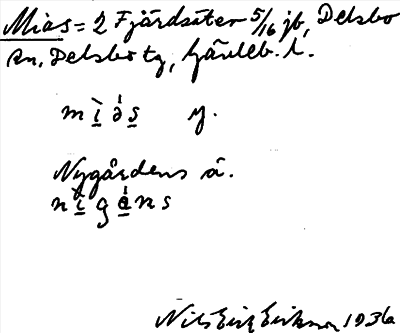 Mias = 2 Fjärdsäter 5/16 jb, Delsbo
sn, Delsbo tg, Gävleb. l.
mìás y.
Nygårdens å.
nìgáns
Nils Eric Erikson 1936